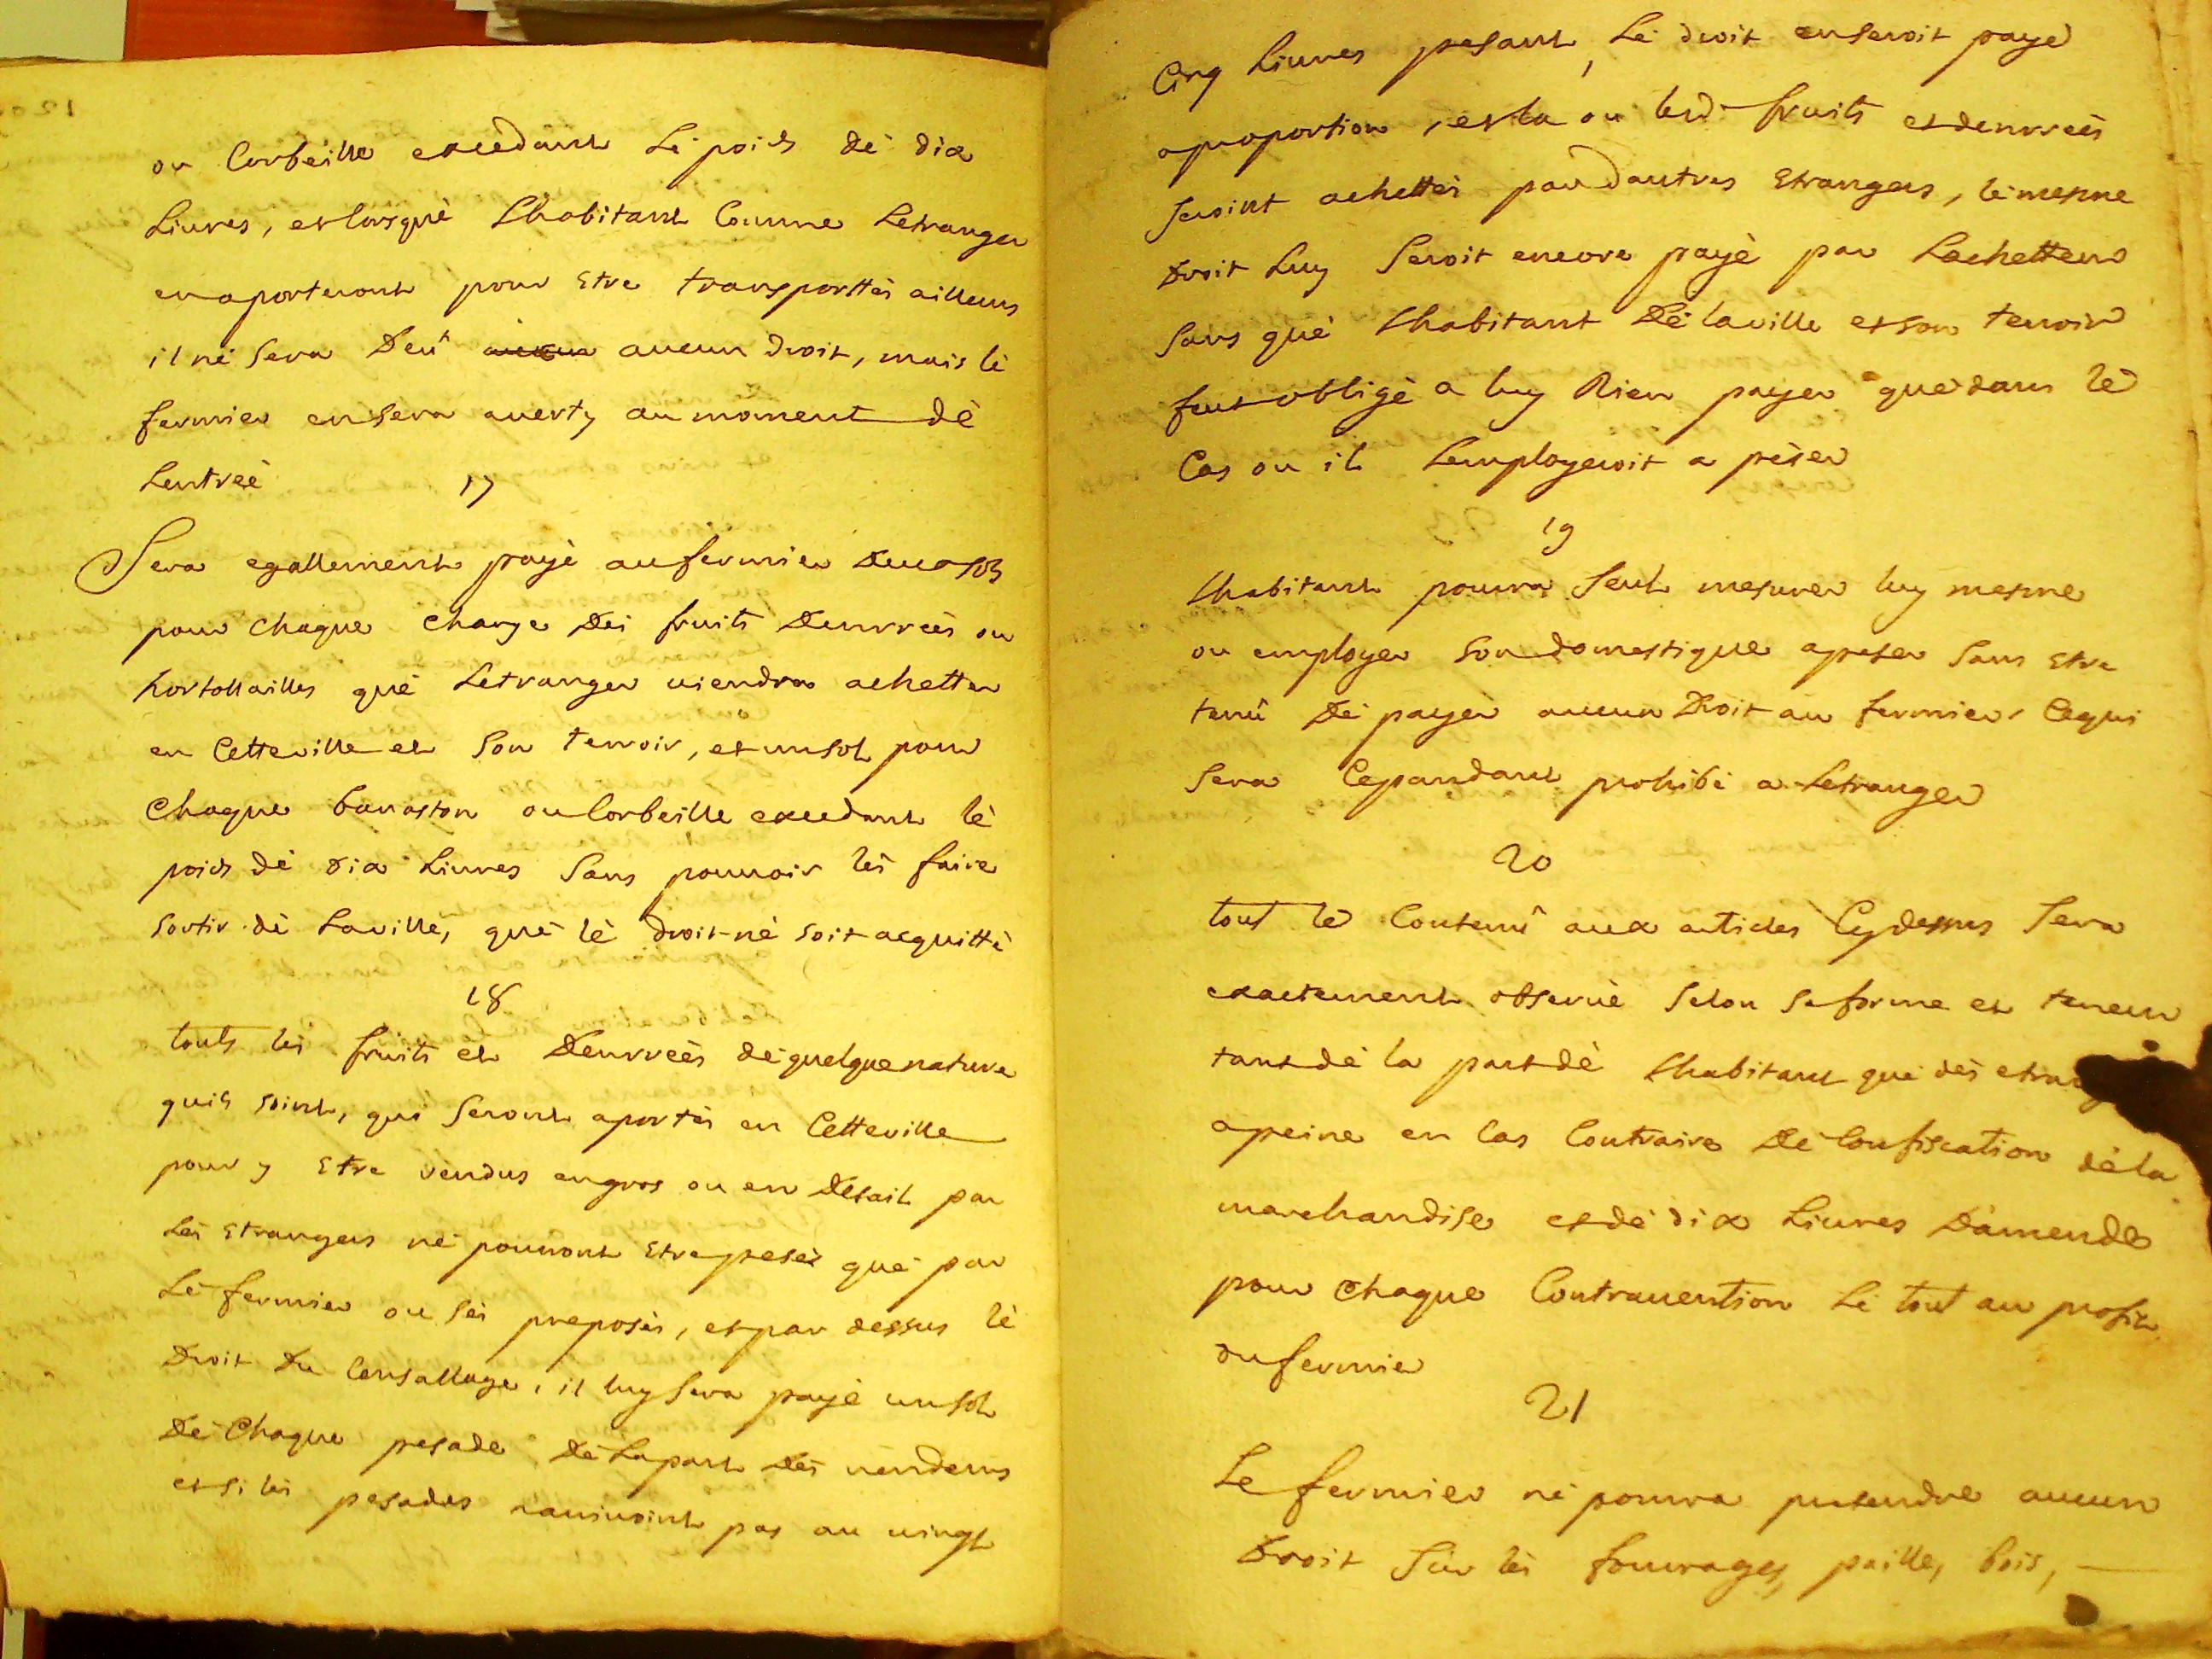 ou Corbeille excedant lé poids dé dix
Liures, et lorsqué Lhabitant Comme Letranger
en aporteront pour Etre transporttés ailleurs
il né sera Deû aucun aucun droit, mais lé
fermier en sera auerty au moment dé
Lentreé
17
Sera egallement payé au fermier Deux sols
pour chaque charge Dés fruits Denrreés ou
hortollailles qué Letranger uiendra achetter
en Cetteville et Son terroir, et un sol pour
chaque banaston ou Corbeille excedant lé
poids dé dix Liures Sans pouuoir lés faire
sortir dé Laville, qué lé droit né soit acquitté
18
touts lés fruits et Denrreés dé quelque nature
quils soint, qui Seront aportés en Cetteville
pour y Etre vendus en gros ou en Détail par
Lés Etrangers né pouront Etre pesés qué par
Lé fermier ou sés preposés, et par dessus lé
Droit Du Censallage, il luy Sera payé un sol
Dé Chaque pesade Dé Lapart Dés uendeurs
et si lés pesades n'ariuoint pas au uingt
Cinq Liures pesant, Lé droit en seroit payé
aproportion, et la ou lesd. fruits et denrreés
seroint achettés par dautres Etrangers, lé mesme
Droit luy Seroit encore payé par Lachetteur
Sans qué Lhabitant Dé laville et son terroir
feut obligé a luy Rien payer que dans lé
Cas ou il Lemployeroit a péser
19
Lhabitant poura Seul mesurer luy mesme
ou employer son domestique apeser Sans Etre
tenû Dé payer aucun Droit au fermier Cequi
Sera Cepandant prohibé a Letranger
20
tout le Contenû aux articles Cydessus Sera
exactement obserué Selon sa forme et teneur
tant dé la part dé Lhabitant qué dés etrang
apeine en Cas Contraire Dé Confiscation déla
marchandise et dé dix Liures Damende
pour chaque Contrauention Lé tout au profit
du fermier
21
Le fermier né poura pretendre aucun
Droit Sur lés fourages, paille, bois,